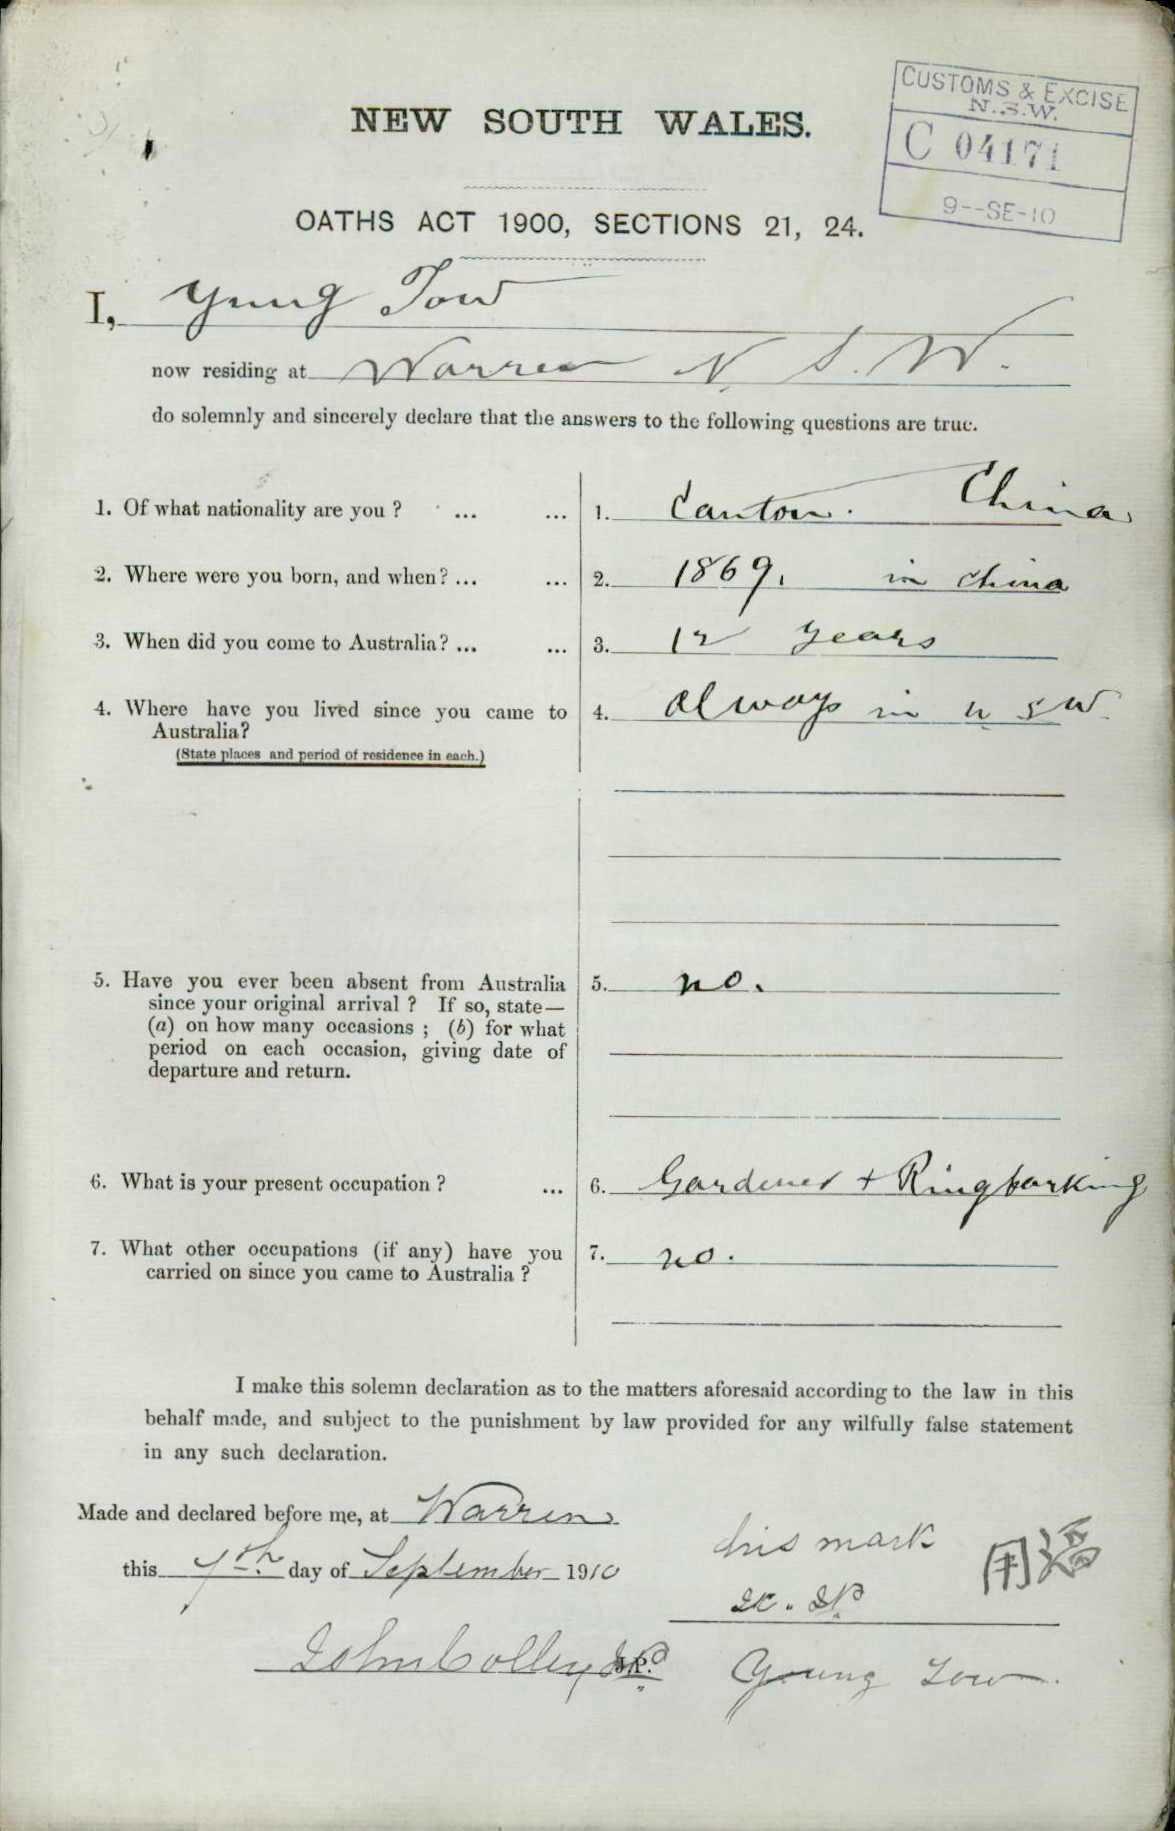 CUSTOMS & EXCISE
N.S.W.
C 04171
9--SE-10
NEW SOUTH WALES.
OATHS ACT 1900, SECTIONS 21, 24.
I, Yung Tow
now residing at Warren N. S. W.
do solemnly and sincerely declare that the answers to the following questions are true.
1. Of what nationality are you ? ... ... 1. Canton. China
2. Where were you born, and when? ... ... 2. 1869. in China
3. When did you come to Australia? ... ... 3. 12 years
4. Where have you lived since you came to 4. always in N S W.
Australia?
(State places and period of residence in each.)
5. Have you ever been absent from Australia 5. no.
since your original arrival ? If so, state—
(a) on how many occasions ; (b) for what
period on each occasion, giving date of
departure and return.
6. What is your present occupation ? ... 6. Gardener + Ringbarking
7. What other occupations (if any) have you 7. no.
carried on since you came to Australia ?
I make this solemn declaration as to the matters aforesaid according to the law in this
behalf made, and subject to the punishment by law provided for any wilfully false statement
in any such declaration.
Made and declared before me, at Warren
his mark
this 7th day of September 1910
John Colley J.P.
Young Tow